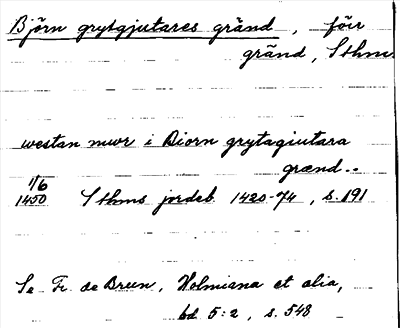 Björn grytgjutares gränd, förr
gränd, Sthm.
westan mwr i Biorn grytagiutara
grænd..
1/6
1450 Sthms jordeb. 1420-74, s. 191
Se Fr. de Brun, Holmiana et alia,
bd 5:2, s. 548